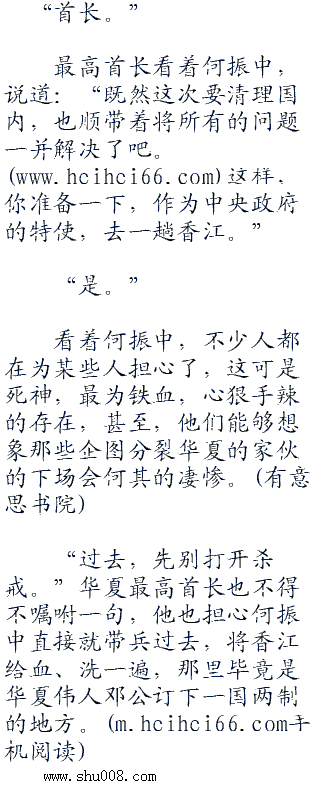 “首长。”
最高首长看着何振中，
说道：“既然这次要清理国
内，也顺带着将所有的问题
一并解决了吧。
(www.hcihci66.com)这样，
你准备一下，作为中央政府
的特使，去一趟香江。”
“是。”
看着何振中，不少人都
在为某些人担心了，这可是
死神，最为铁血，心狠手辣
的存在，甚至，他们能够想
象那些企图分裂华夏的家伙
的下场会何其的凄惨。(有意
思书院)
“过去，先别打开杀
戒。”华夏最高首长也不得
不嘱咐一句，他也担心何振
中直接就带兵过去，将香江
给血、洗一遍，那里毕竟是
华夏伟人邓公订下一国两制
的地方。(m.hcihci66.com手
机阅读)
www.shu008.com